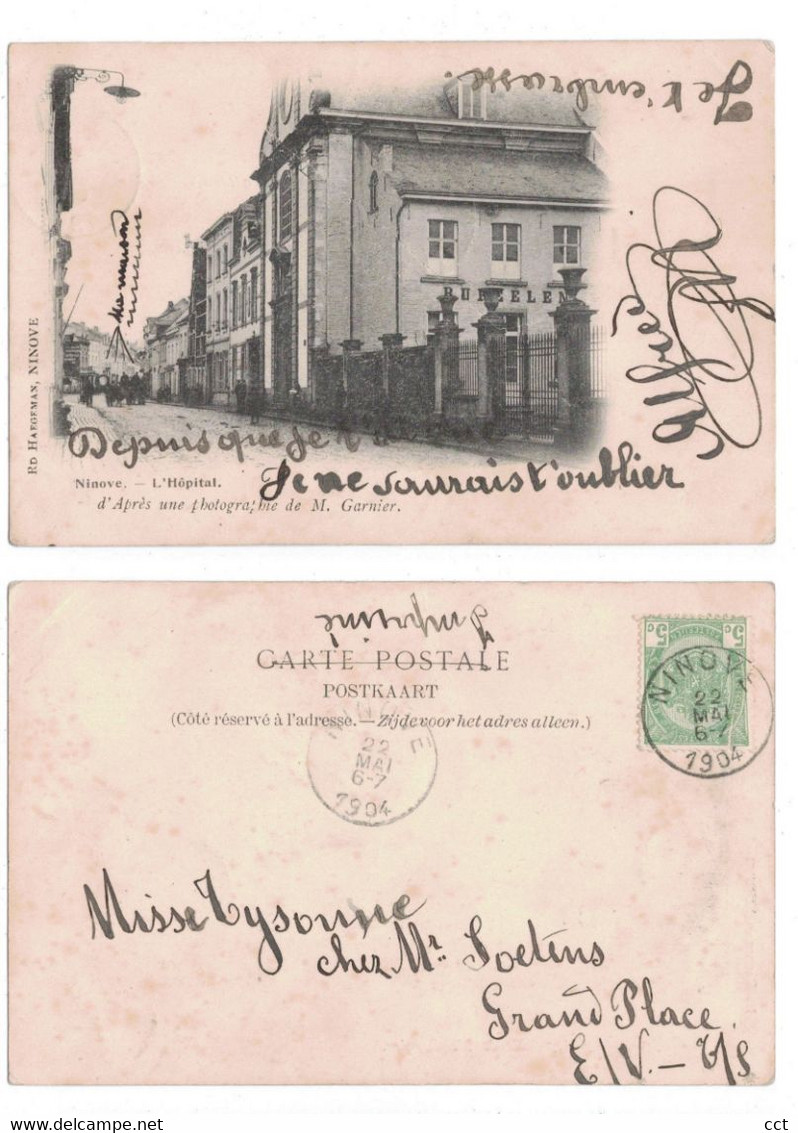 Je t'embrasse.
Ma maison
RUPEELEN
ED HAEGEMAN, NINOVE
Depuis que je
Ninove. — L'Hôpital.
Je ne saurais t'oublier
d'Après une photographie de M. Garnier.
Imprimé
CARTE POSTALE
POSTKAART
(Côté réservé à l'adresse. — Zijde voor het adres alleen.)
5c 5c
NINOVE
22
MAI
6-7
1904
NINOVE
22
MAI
6-7
1904
Misse Tysonne
chez Mr. Soetens
Grand Place.
E/V. —
cct